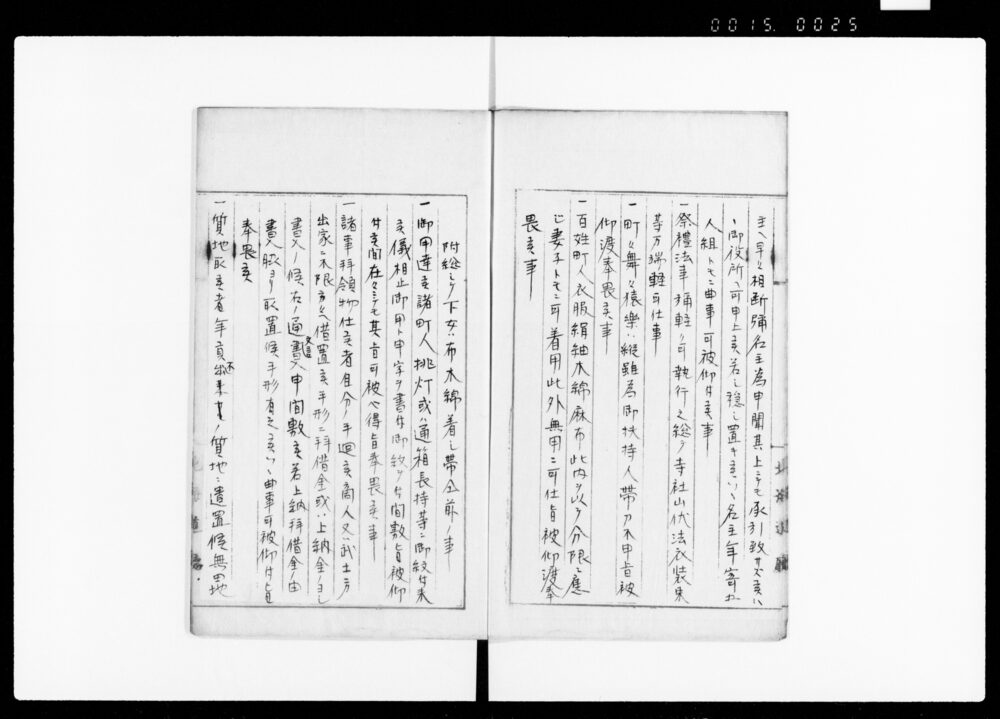 0015. 0025
主ヘ早々相断彌名主為申聞其上ニテモ承引致サズ候ハ
、御役所ヘ可申上候若シ穏シ置キ候ハ、名主年寄五
人組トモニ曲事可被仰付候事
一祭禮法事禰軽ク可執行之総テ寺社山伏法衣装束
等万端軽可仕事
一町人舞々猿樂ハ縦雖為御扶持人帯刀不申旨被
仰渡奉畏候事
一百姓町人衣服絹紬木綿麻布此内ヲ以テ分限ニ應
ジ妻子トモニ可着用此外無用ニ可仕旨被仰渡奉
畏候事
附総シテ下女ハ布木綿着シ帯全前ノ事
一御用達候諸町人挑灯或ハ通箱長持等ニ御紋付来
候儀相止御用ト申字ヲ書付御紋ヲ付間敷旨被仰
付候間在々ニテモ其旨可被心得旨奉畏候事
一諸事拜領物仕候者自分ノ手廻候商人又ハ武士方
出家ニ不限方々借置候手形ニ拜借金或ハ上納金ノヨシ
書入候右ノ通書入申間敷候若上納拜借金ノ由
書入脇ヨリ取置候手形有之候ハ、曲事可被仰付旨
奉畏候
一質地取候者年貢不出来其ノ質地ニ遣置候無田地